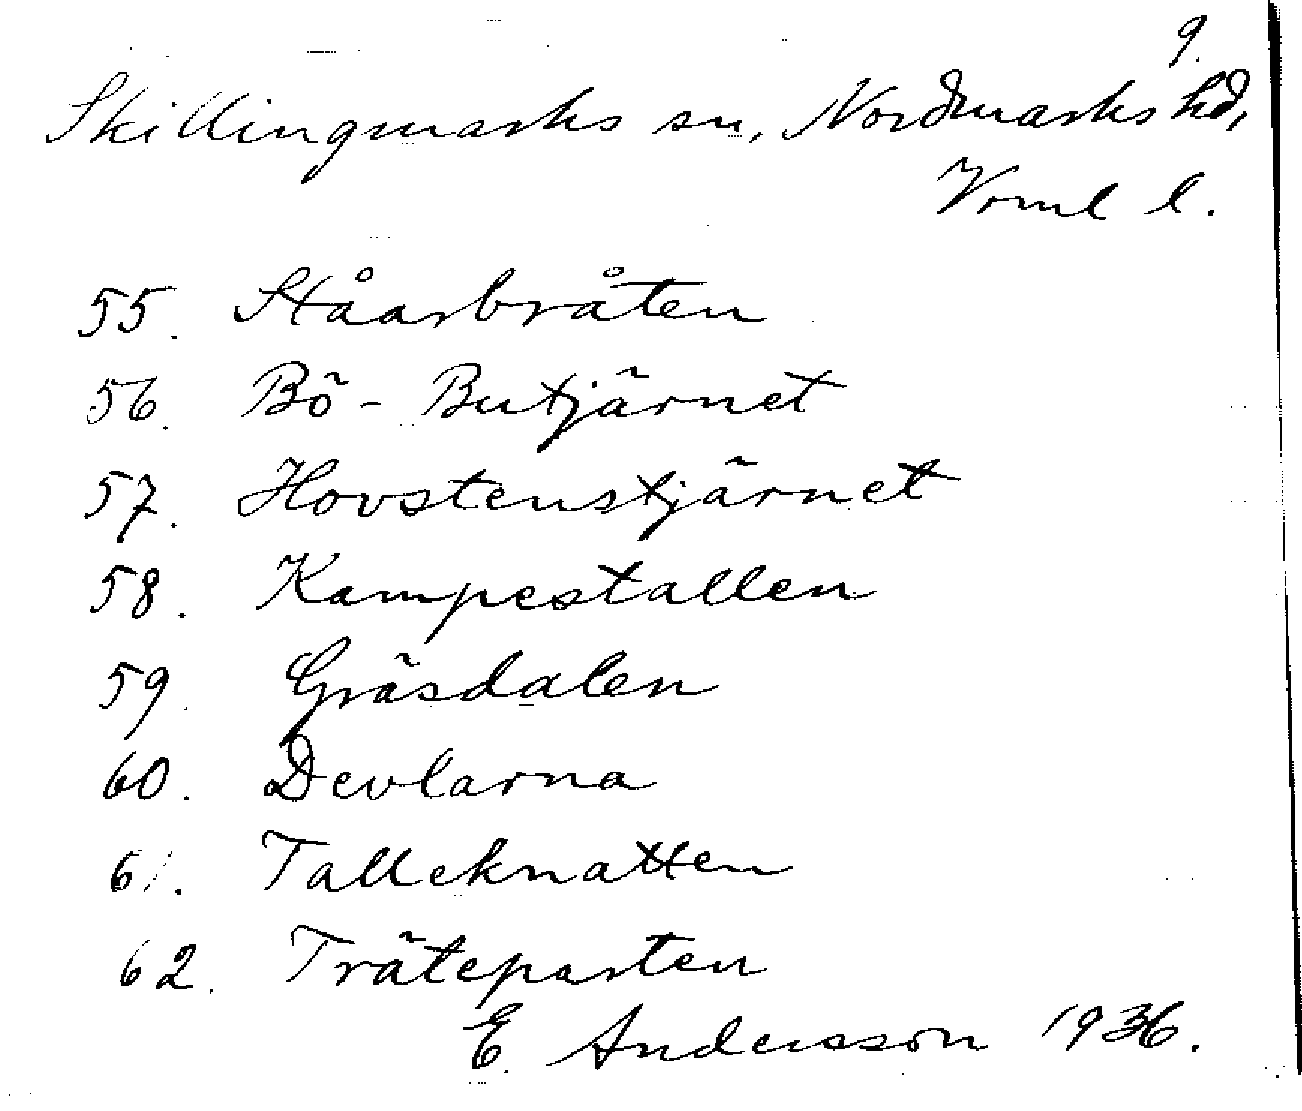 9.
Skillingmarks sn, Nordmarks hd,
Vrml l.
55. Ståarbråten
56. Bö- Butjärnet
57. Hovstenstjärnet
58. Kampestallen
59. Gräsdalen
60. Devlarna
61. Talleknatten
62. Träteparten
E. Andersson 1936.